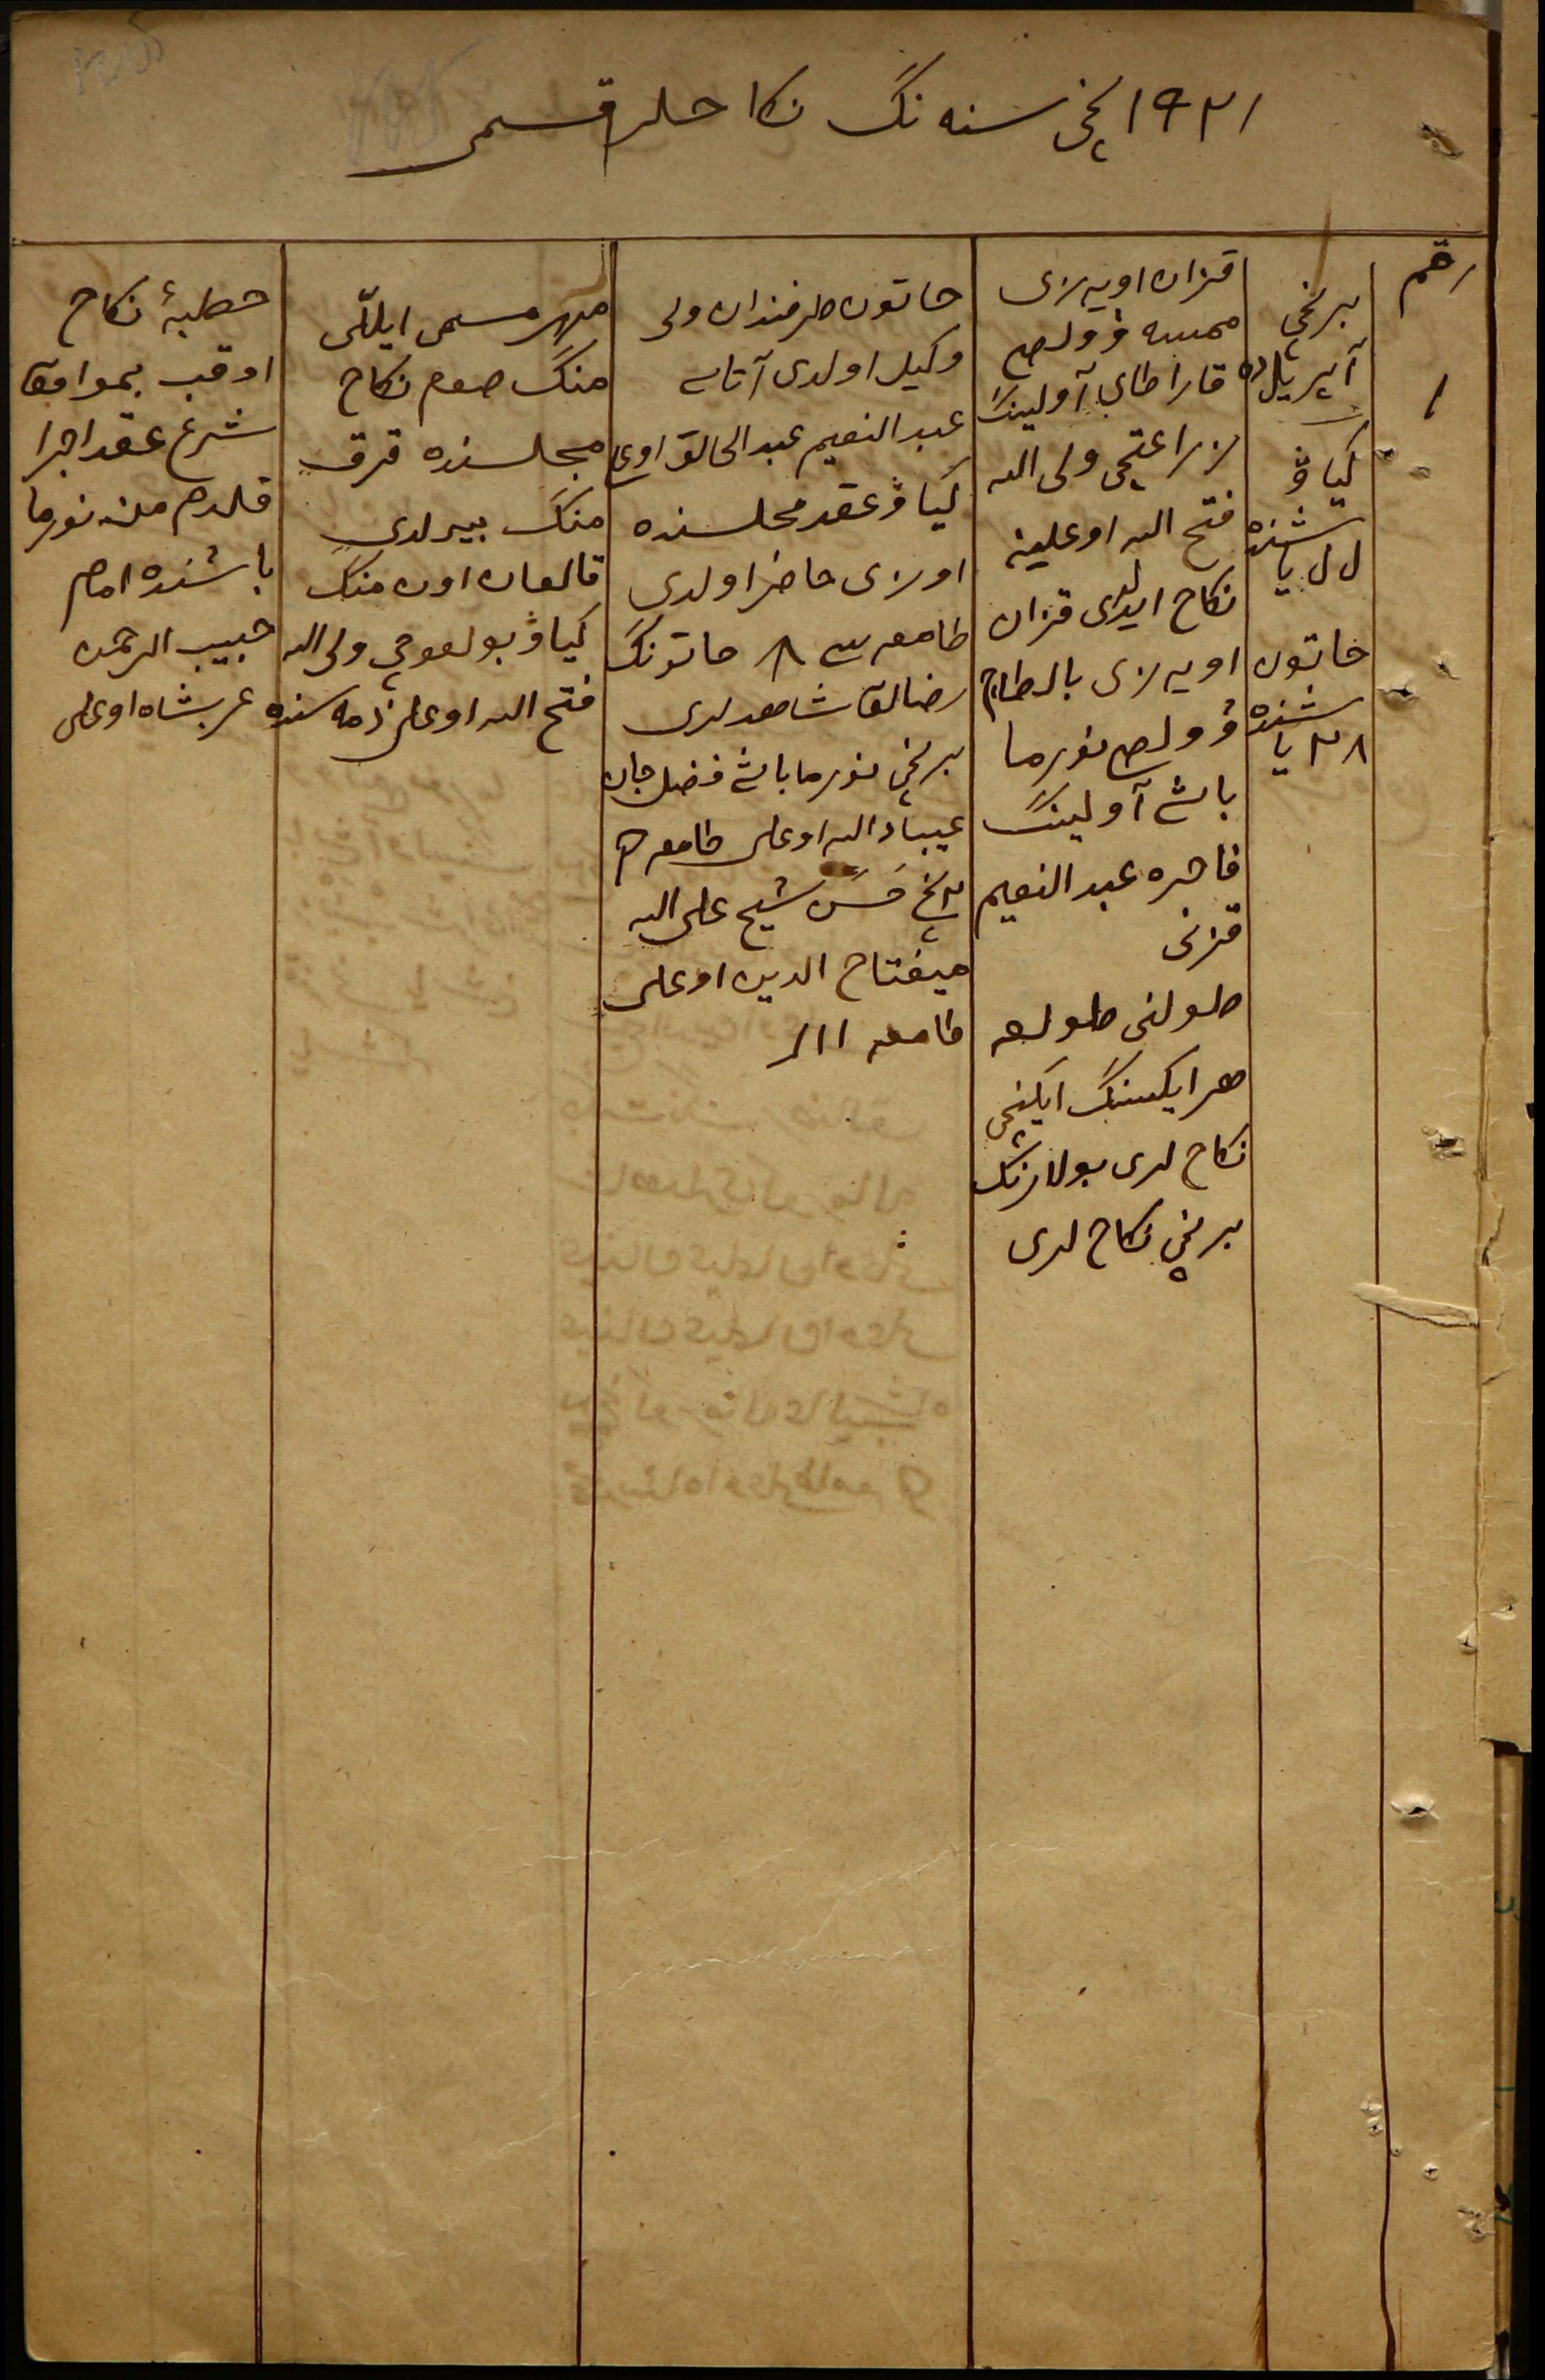 ١٩٢١ نچی سنه نڭ نكاحلر قسمی
رقم
١
برنچی
آپریل ده
كیاڤ
یاشنده
خاتون
یاشنده
٢٨
قزان اویه زی
ڤولص
قاراطای آولینڭ
ولی الله
فتح الله اوغلینه
نكاح ایدلدی قزان
اویه زی بالطاچ
ڤولص نورما
باش آولینڭ
عبد النعیم
قزنی
طولنی طولغه
هر ایكسینڭ ایكنچی
نكاح لری بولارنڭ
برنچی نكاح لری
خاتون طرفندان ولی
وكیل اولدی آتاسی
عبد النعیم عبد الخالق اوغلی
كیاڤ عقد مجلسنده
اوزی حاضر اولدی
طامغه سی خاتوننڭ
رضالق شاهدلری
برنچی نورما باش فضل جان
عیباد الله اوغلی طامغه
٢نچی شیخ علی الله
میفتاح الدین اوغلی
طامغه ١١١
مهر مسمی ایللی
منڭ صوم نكاح
مجلسنده قرق
منڭ بیرلدی
قالغان اون منڭ
كیاڤ بولغوچی ولی الله
فتح الله اوغلی ذمه سنده
خطبهٔ نكاح
اوقب بموافق
شرع عقد اجرا
قلدم من نورما
باشنده امام
حبیب الرحمن
عربشاه اوغلی